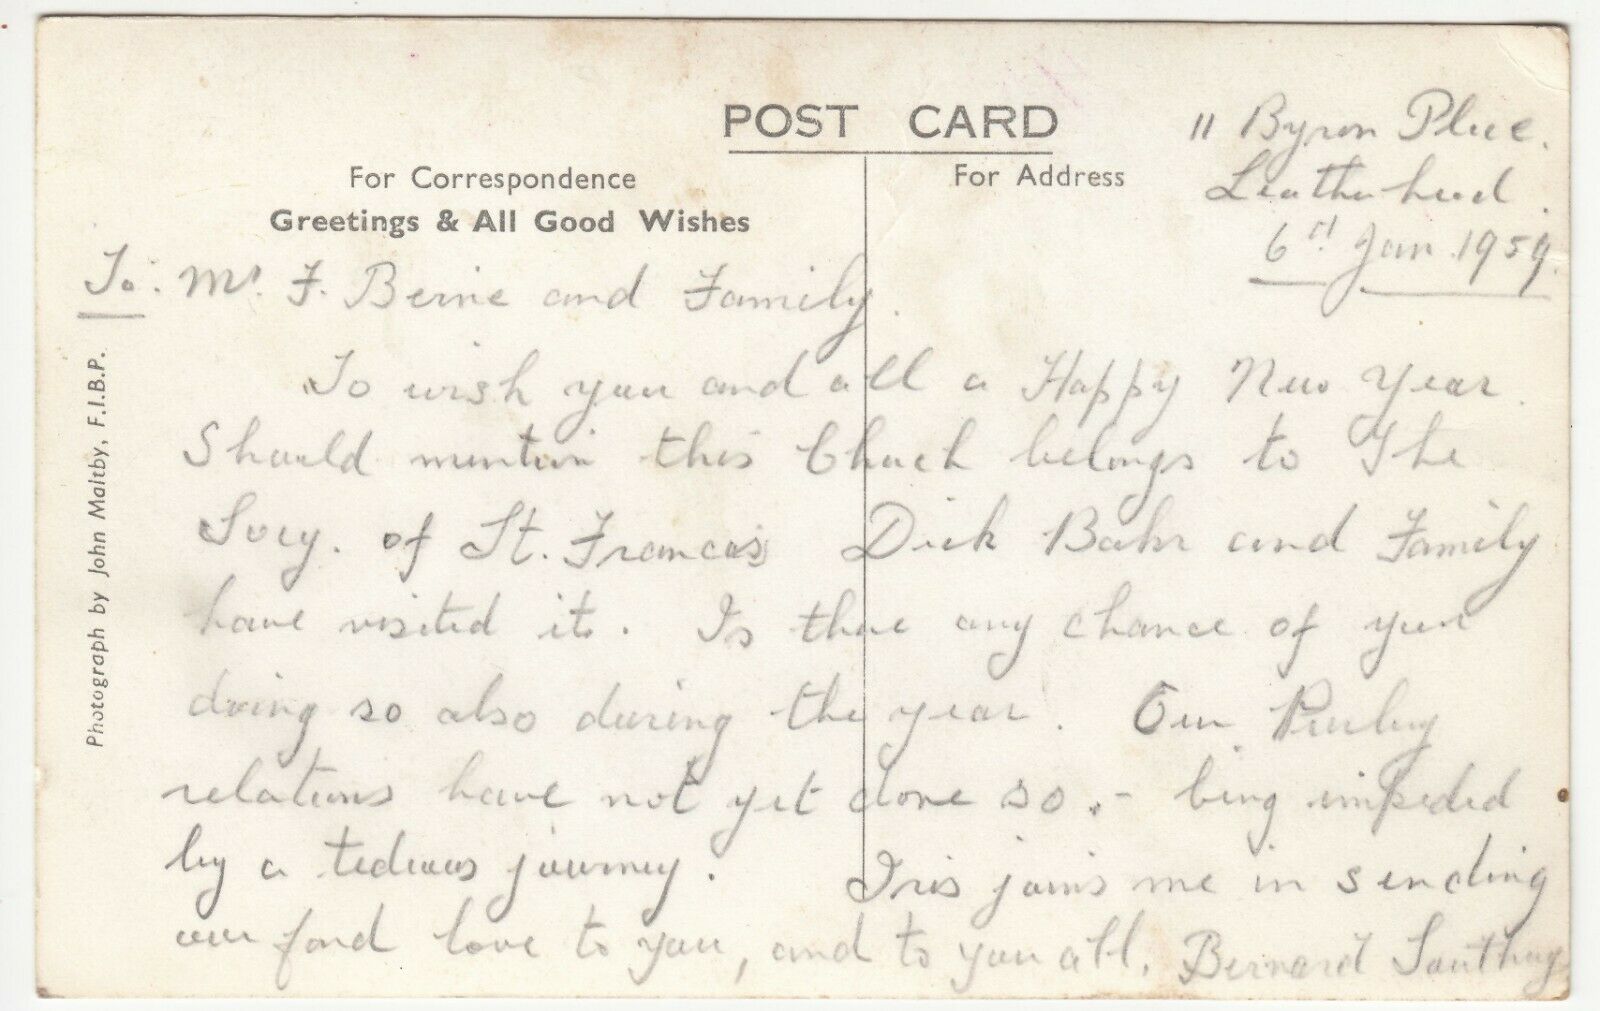 POST CARD
For Correspondence
Greetings & All Good Wishes
For Address
11 Byron Place.
Leatherhead.
6th Jan. 1959.
To: Mr. F. Beirne and Family.
To wish you and all a Happy New Year.
Should mention this Church belongs to The
Socy. of St. Francis Dick Bahr and Family
have visited it. Is there any chance of your
doing so also during the year. Our Purley
relations have not yet done so. - being impeded
by a tedious journey. Iris joins me in sending
our fond love to you, and to you all. Bernard
Photograph by John Maltby, F.I.B.P.